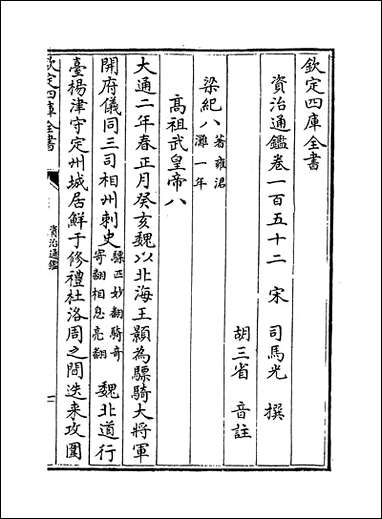 欽定四庫全書
資治通鑑卷一百五十二
宋 司馬光 撰
胡三省 音註
梁紀八 著雍涒灘一年
高祖武皇帝八
大通二年春正月癸亥魏以北海王顥為驃騎大將軍
開府儀同三司相州刺史 驃匹妙翻騎奇寄翻相息亮翻 魏北道行
臺楊津守定州城居鮮于修禮杜洛周之間迭來攻圍
欽定四庫全書
資治通鑑
一